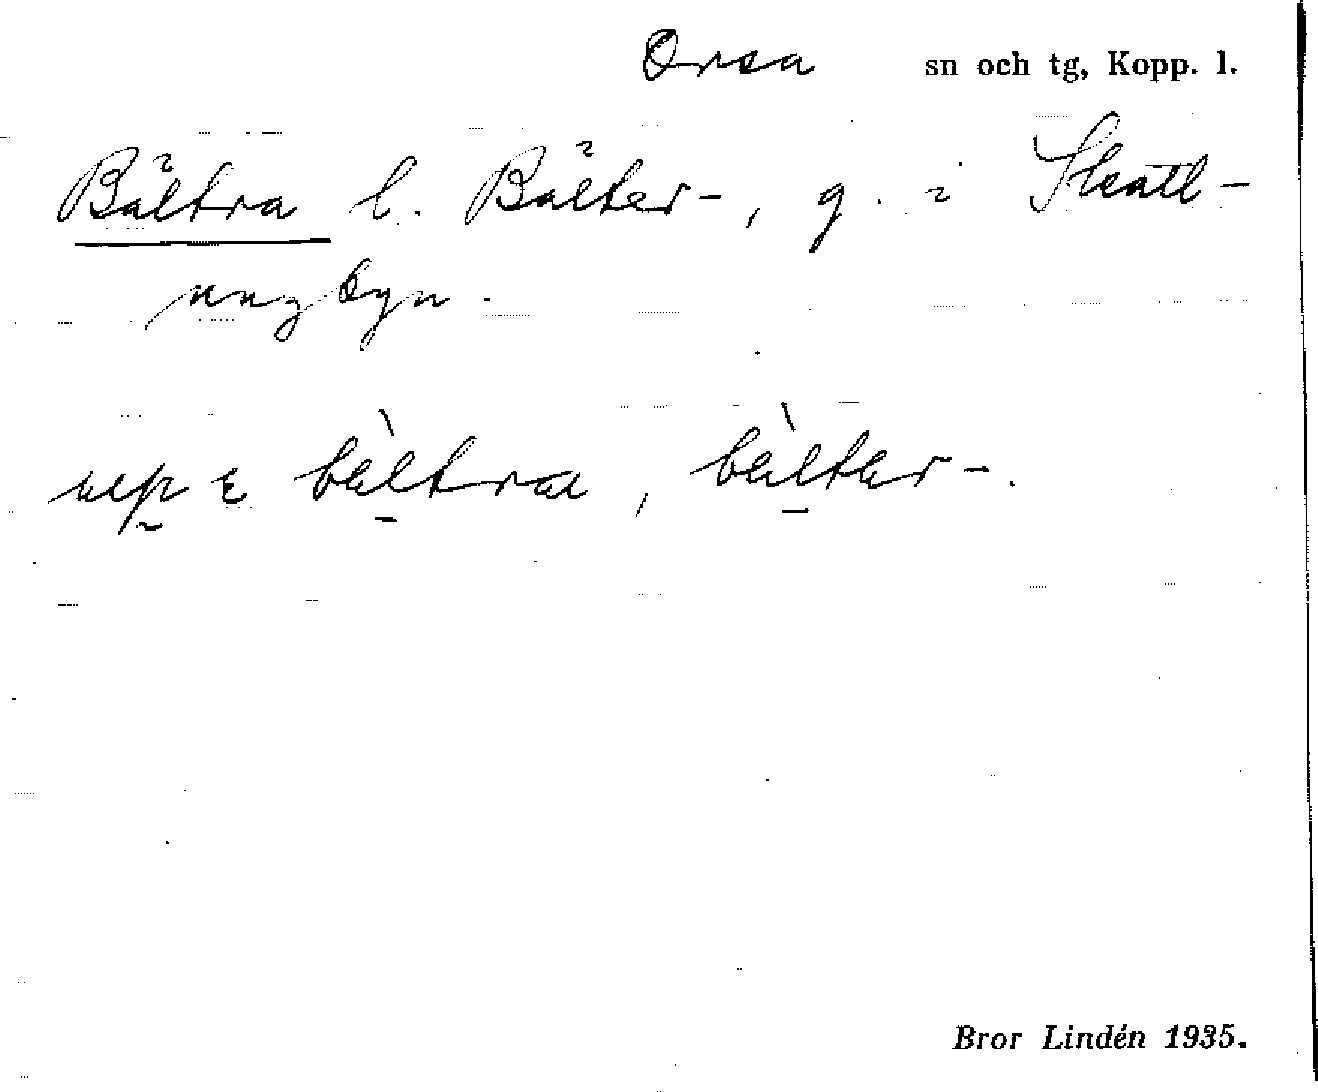 Orsa sn och tg, Kopp. l.
Bältra l. Bälter-, g. i Skatt-
ungbyn.
bæ̀ltra, bæ̀ltær-.
Bror Lindén 1935.